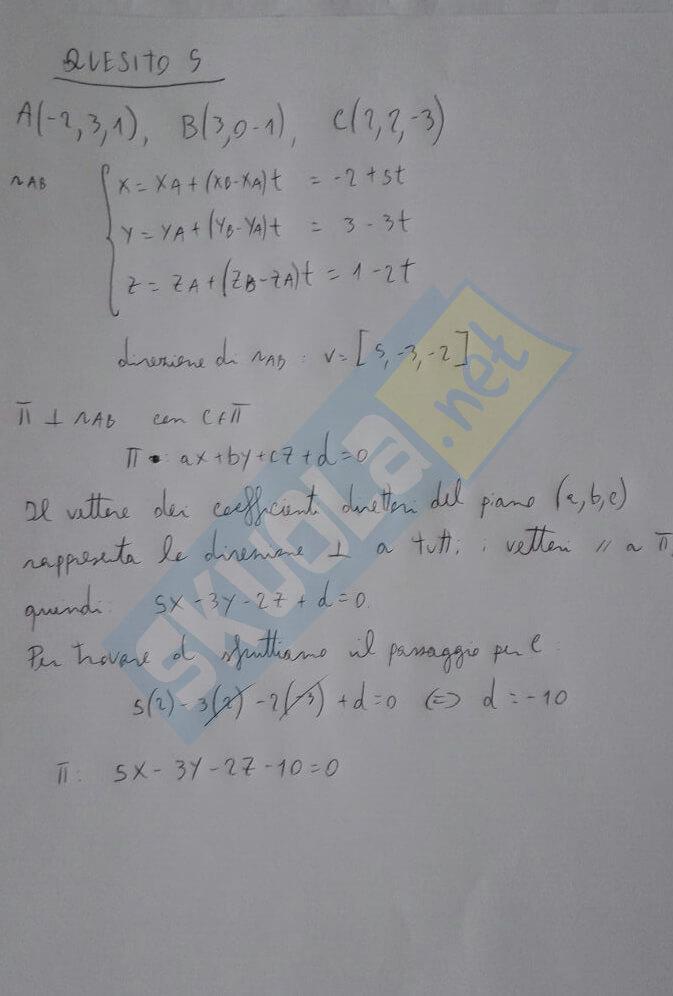 QUESITO 5
A(-2,3,1), B(3,0-1), C(2,2,-3)
rAB { x = xA + (xB-xA)t = -2+5t
y = yA + (yB-yA)t = 3-3t
z = zA + (zB-zA)t = 1-2t
direzione di rAB : v = [5,-3,-2]
π ⊥ rAB con C∈π
π : ax+by+cz+d=0
Il vettore dei coefficienti direttori del piano (a,b,c)
rappresenta la direzione ⊥ a tutti i vettori // a π,
quindi: 5x-3y-2z+d=0.
Per trovare d sfruttiamo il passaggio per C:
5(2)-3(2)-2(-3)+d=0 <=> d=-10
π: 5x-3y-2z-10=0
SKUOLA.net